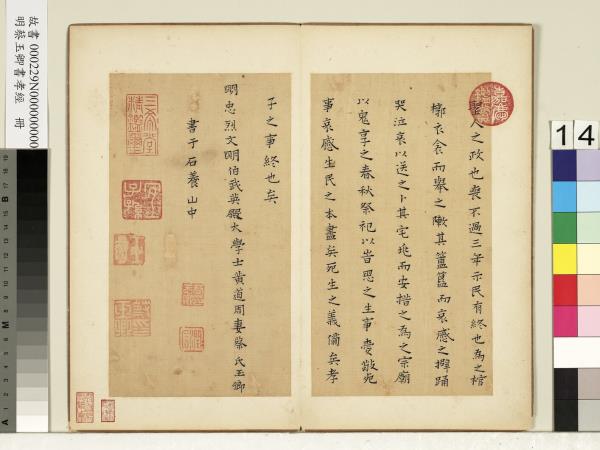 聖人之政也喪不過三年示民有終也為之棺
槨衣衾而舉之陳其簠簋而哀慼之擗踊
哭泣哀以送之卜其宅兆而安措之為之宗廟
以鬼享之春秋祭祀以時思之生事愛敬死
事哀慼生民之本盡矣死生之義備矣孝
子之事終也矣
明忠烈文明伯武英殿大學士黃道周妻蔡氏玉卿
書于石養山中
三希堂
精鑑璽
宜
子孫
嘉慶
故書 000229N000000000
明蔡玉卿書孝經 冊
14
B
M
A